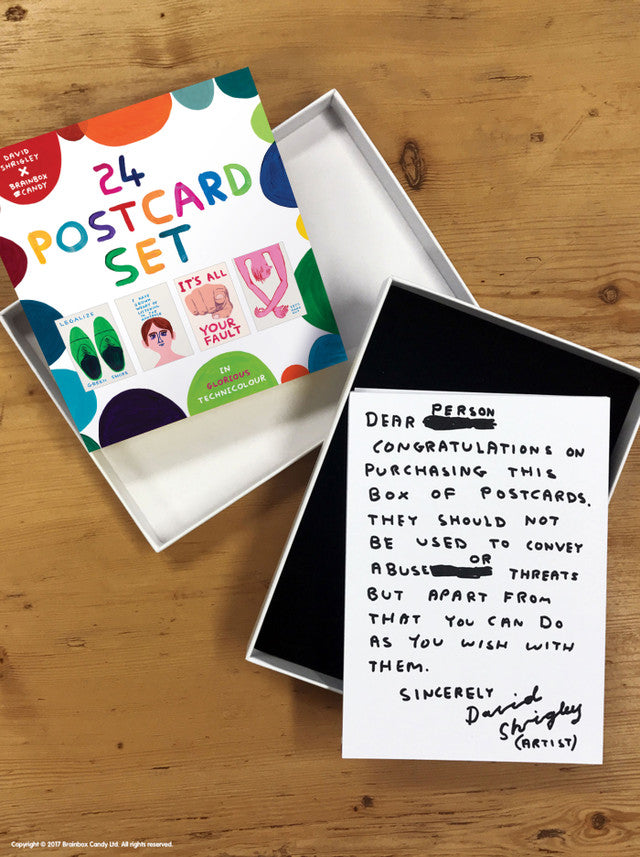 DAVID
SHRIGLEY
X
BRAINBOX
CANDY
24
POSTCARD
SET
LEGALIZE
GREEN SHOES
I HAVE
GROWN
WEARY OF
LISTENING
TO YOUR
IT'S ALL
YOUR
FAULT
IN
GLORIOUS
TECHNICOLOUR
DEAR PERSON
CONGRATULATIONS ON
PURCHASING THIS
BOX OF POSTCARDS.
THEY SHOULD NOT
BE USED TO CONVEY
ABUSE OR THREATS
BUT APART FROM
THAT YOU CAN DO
AS YOU WISH WITH
THEM.
SINCERELY
David
Shrigley
(ARTIST)
Copyright © 2017 Brainbox Candy Ltd. All rights reserved.